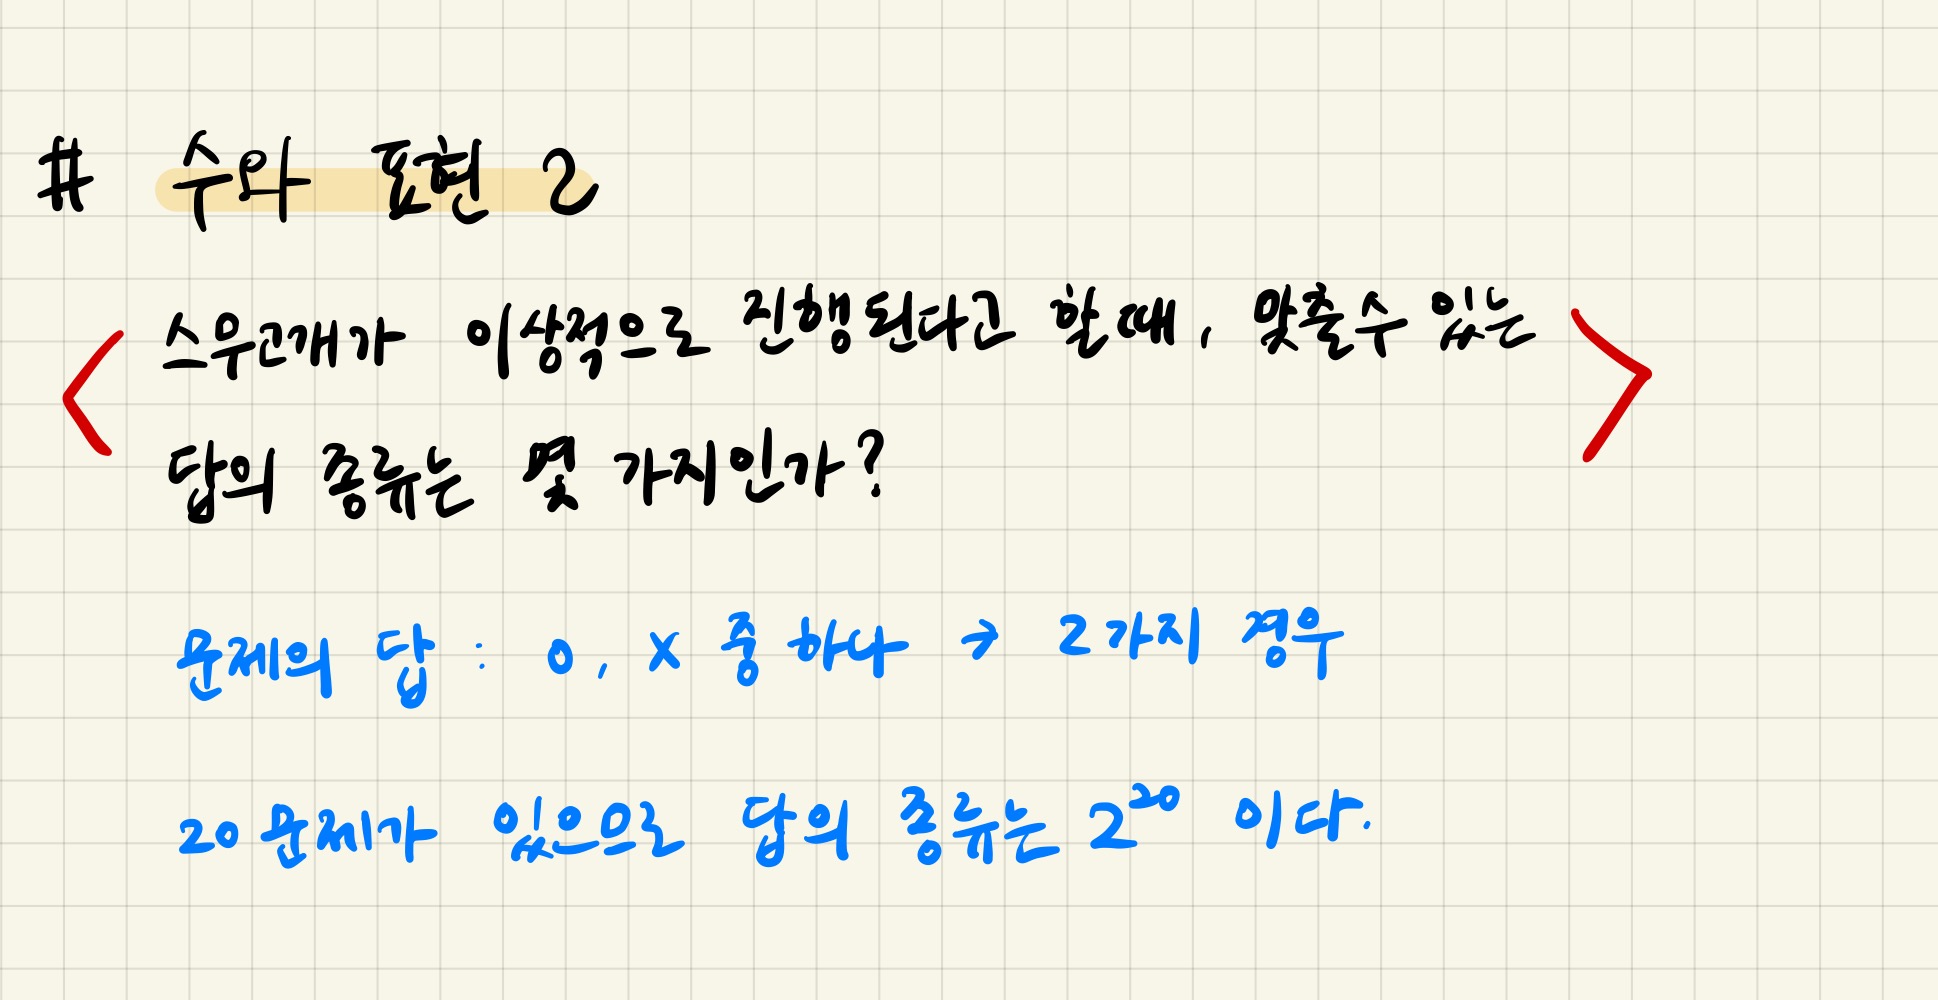 # 수와 표현 2
< 스무고개가 이상적으로 진행된다고 할 때, 맞출 수 있는 >
답의 종류는 몇 가지인가?
문제의 답 : O, X 중 하나 → 2가지 경우
20문제가 있으므로 답의 종류는 2²⁰ 이다.